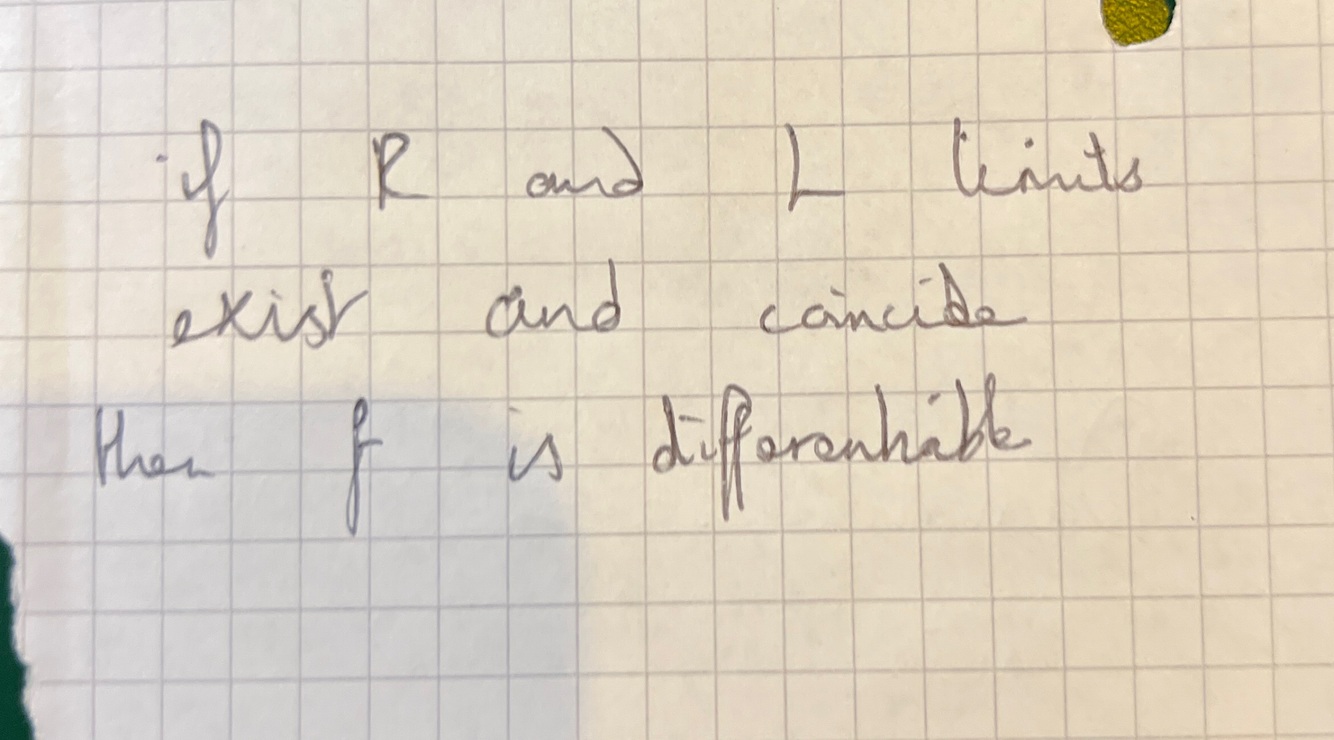 if R and L limits
exist and coincide
then f is differentiable